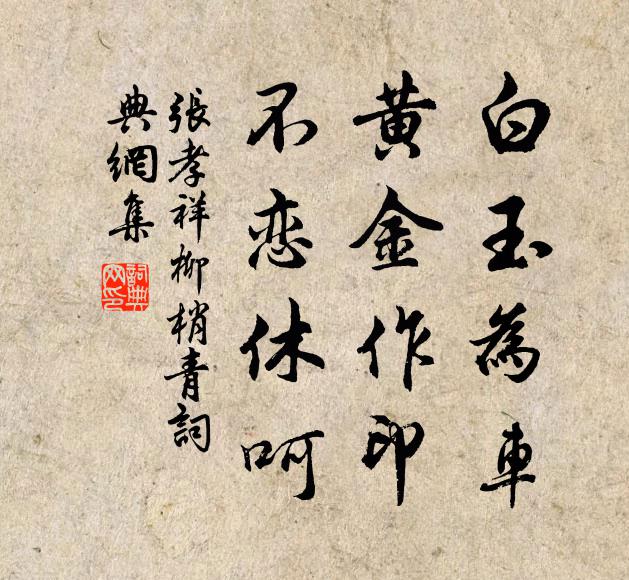 白玉為車
黃金作印
不恋休呵
張孝祥柳梢青詞
典網集
詞典
网印